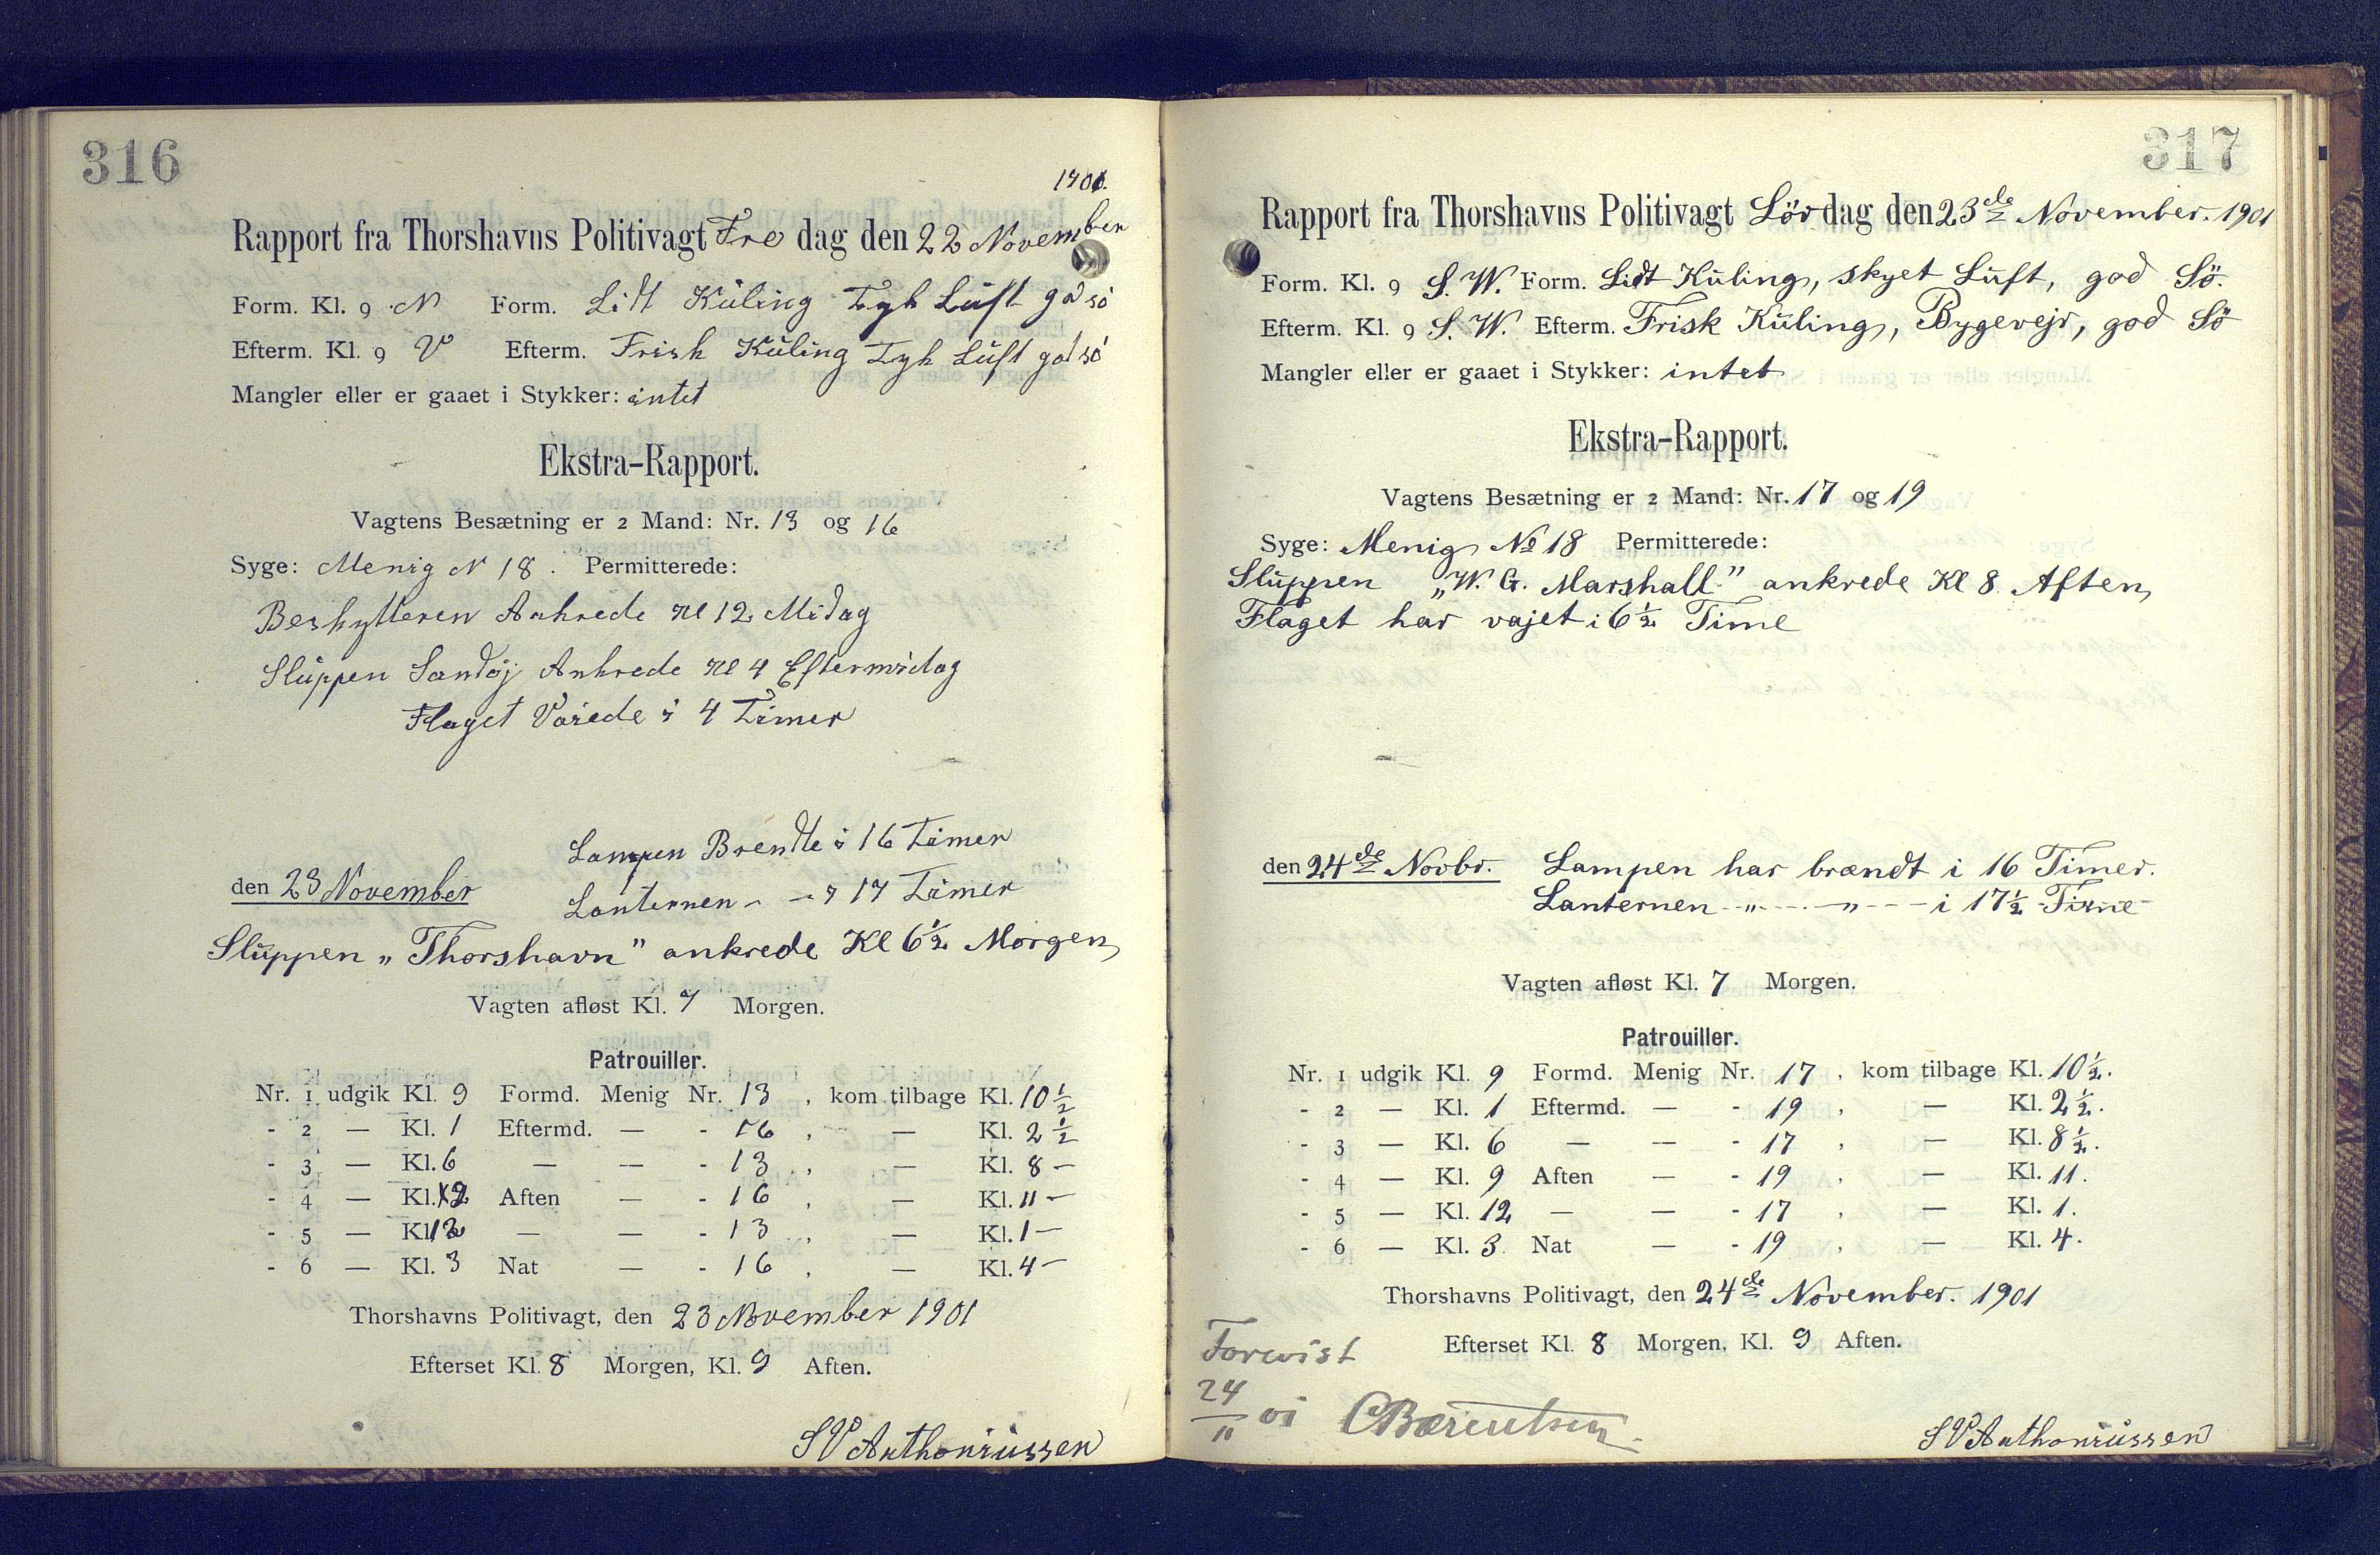 316
1901.
Rapport fra Thorshavns Politivagt Fre dag den 22 November
Form. Kl. 9 N Form. Lidt Kuling Tyk Luft god sö
Efterm. Kl. 9 V Efterm. Frisk Kuling Tyk Luft god sö
Mangler eller er gaaet i Stykker: intet
Ekstra-Rapport.
Vagtens Besætning er 2 Mand: Nr. 13 og 16
Syge: Menig N 18. Permitterede:
Beskytteren Ankrede Kl 12 Midag
Sluppen Sandöj Ankrede Kl 4 Eftermidag
Flaget Vaiede i 4 Timer
Lampen Brendte i 16 Timer
den 23 November Lanternen - - i 17 Timer
Sluppen „Thorshavn" ankrede Kl 6½ Morgen
Vagten afløst Kl. 7 Morgen.
Patrouiller.
Nr. 1 udgik Kl. 9 Formd. Menig Nr. 13, kom tilbage Kl. 10½
- 2 — Kl. 1 Eftermd. — - 16, — Kl. 2½
- 3 — Kl. 6 — — - 13, — Kl. 8 -
- 4 — Kl. 9 Aften — - 16, — Kl. 11 -
- 5 — Kl. 12 — — - 13, — Kl. 1 -
- 6 — Kl. 3 Nat — - 16, — Kl. 4 -
Thorshavns Politivagt, den 23 November 1901
Efterset Kl. 8 Morgen, Kl. 9 Aften.
SV Anthoniussen
317
Rapport fra Thorshavns Politivagt Lör dag den 23de November. 1901
Form. Kl. 9 S. W. Form. Lidt Kuling, skyet Luft, god Sö.
Efterm. Kl. 9 S. W. Efterm. Frisk Kuling, Bygevejr, god Sö
Mangler eller er gaaet i Stykker: intet
Ekstra-Rapport.
Vagtens Besætning er 2 Mand: Nr. 17 og 19
Syge: Menig No 18 Permitterede:
Sluppen „W. G. Marshall" ankrede Kl 8. Aften,
Flaget har vajet i 6½ Time
den 24de Novbr. Lampen har brændt i 16 Timer.
Lanternen - „ - - - „ - - - i 17½ Time
Vagten afløst Kl. 7 Morgen.
Patrouiller.
Nr. 1 udgik Kl. 9 Formd. Menig Nr. 17, kom tilbage Kl. 10½.
- 2 — Kl. 1 Eftermd. — - 19, — Kl. 2½.
- 3 — Kl. 6 — — - 17, — Kl. 8½.
- 4 — Kl. 9 Aften — - 19, — Kl. 11.
- 5 — Kl. 12 — — - 17, — Kl. 1.
- 6 — Kl. 3 Nat — - 19, — Kl. 4.
Thorshavns Politivagt, den 24de November. 1901
Efterset Kl. 8 Morgen, Kl. 9 Aften.
Forevist
24/11 01 CBærentsen
SV Anthoniussen